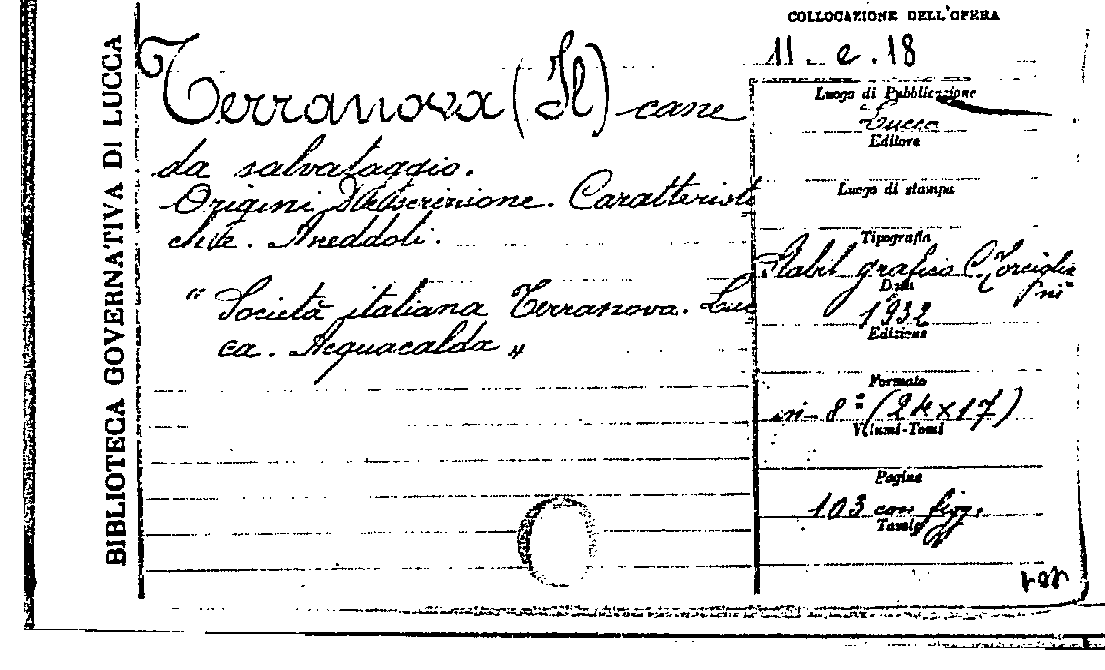 BIBLIOTECA GOVERNATIVA DI LUCCA
Terranova (Il) cane
da salvataggio.
Origini Descrizione. Caratteristi
che. Aneddoti.
"Società italiana Terranova. Luc
ca. Acquacalda"
COLLOCAZIONE DELL'OPERA
11. e. 18
Luogo di Pubblicazione
Lucca
Editore
Luogo di stampa
Tipografia
Stabil. grafico C. Torciglia
ni
Data
1932
Edizione
Formato
in-8° (24x17)
Volumi-Tomi
Pagine
103 con figg.
Tavole